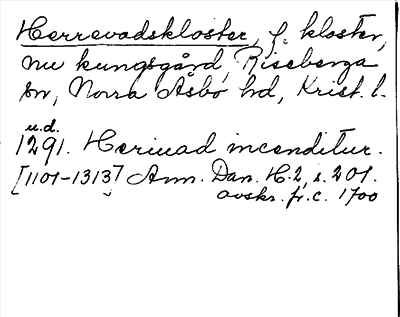 Herrevadskloster, f. kloster,
nu kungsgård, Riseberga
sn, Norra Åsbo hd, Krist. l.
u.d.
1291. Heriuad incenditur.
[1101-1313] Ann. Dan. H. 2, s. 201.
avskr. fr. c. 1700